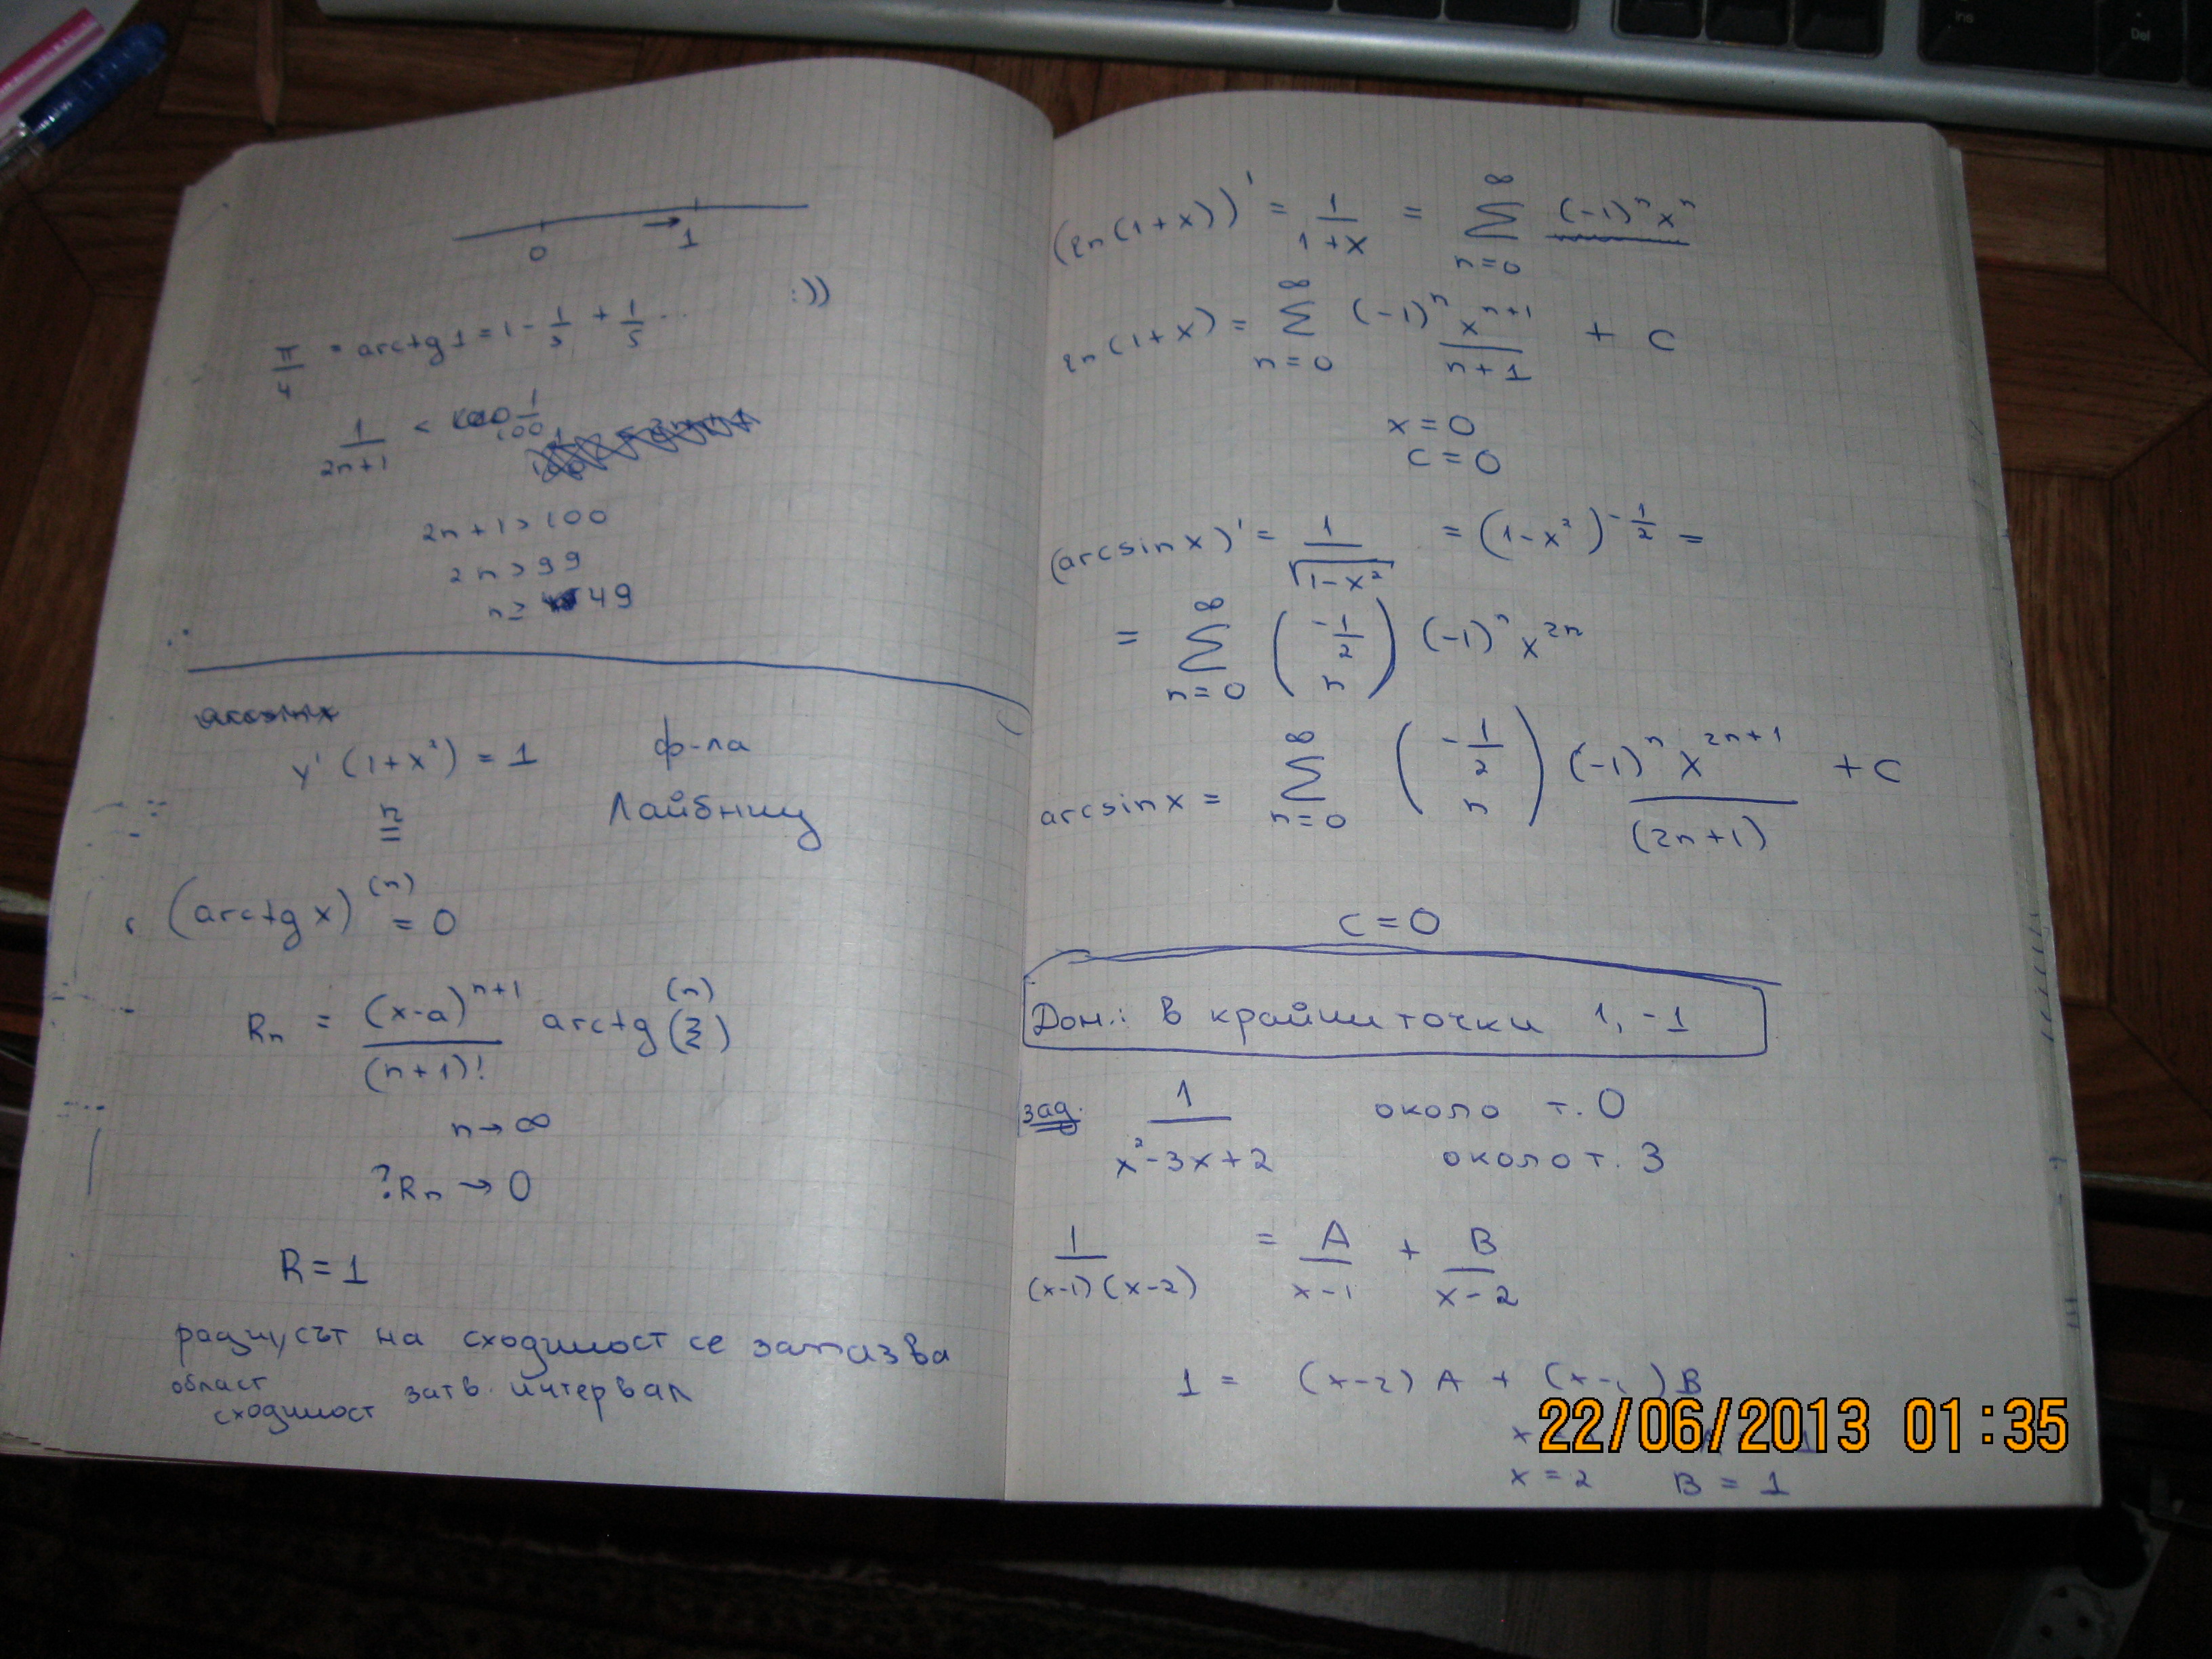 0 → 1
π/4 = arctg 1 = 1 - 1/3 + 1/5 ... :))
1/(2n+1) < 1/100
2n + 1 > 100
2n > 99
n ≥ 49
y' (1+x²) = 1 ф-ла
n Лайбниц
(arctg x)^(n) = 0
Rn = (x-a)^(n+1)/(n+1)! arctg^(n) (ξ)
n → ∞
? Rn → 0
R = 1
радиусът на сходимост се запазва
област затв. интервал
сходимост
(ln(1+x))' = 1/(1+x) = ∑_{n=0}^∞ (-1)^n x^n
ln(1+x) = ∑_{n=0}^∞ (-1)^n x^(n+1)/(n+1) + C
x = 0
c = 0
(arcsin x)' = 1/√(1-x²) = (1-x²)^(-1/2) =
= ∑_{n=0}^∞ (-1/2 n) (-1)^n x^(2n)
arcsin x = ∑_{n=0}^∞ (-1/2 n) (-1)^n x^(2n+1)/(2n+1) + C
c = 0
Дом.: в крайни точки 1, -1
зад. 1/(x²-3x+2) около т. 0
около т. 3
1/((x-1)(x-2)) = A/(x-1) + B/(x-2)
1 = (x-2) A + (x-1) B
22/06/2013 01:35
x = 2 B = 1
Ins
Del